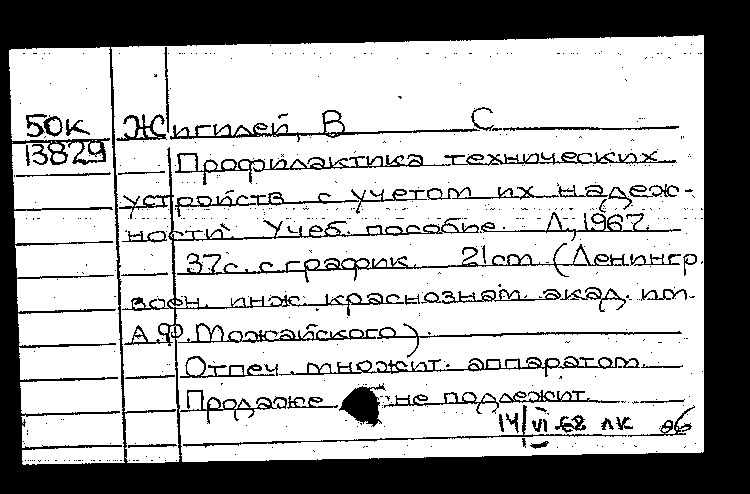 50к Жигилей, В С
13829 Профилактика технических
устройств с учетом их надеж-
ности. Учеб. пособие. Л., 1967.
37с. с график. 21 cm (Ленингр.
воен. инж. краснознам. акад. им.
А.Ф. Можайского).
Отпеч. множит. аппаратом.
Продаже не подлежит.
14/VI-68 ЛК 96